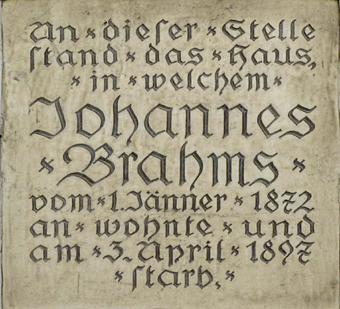 An dieser Stelle
stand das Haus,
in welchem
Johannes
Brahms
vom 1. Jänner 1872
an wohnte und
am 3. April 1897
starb.